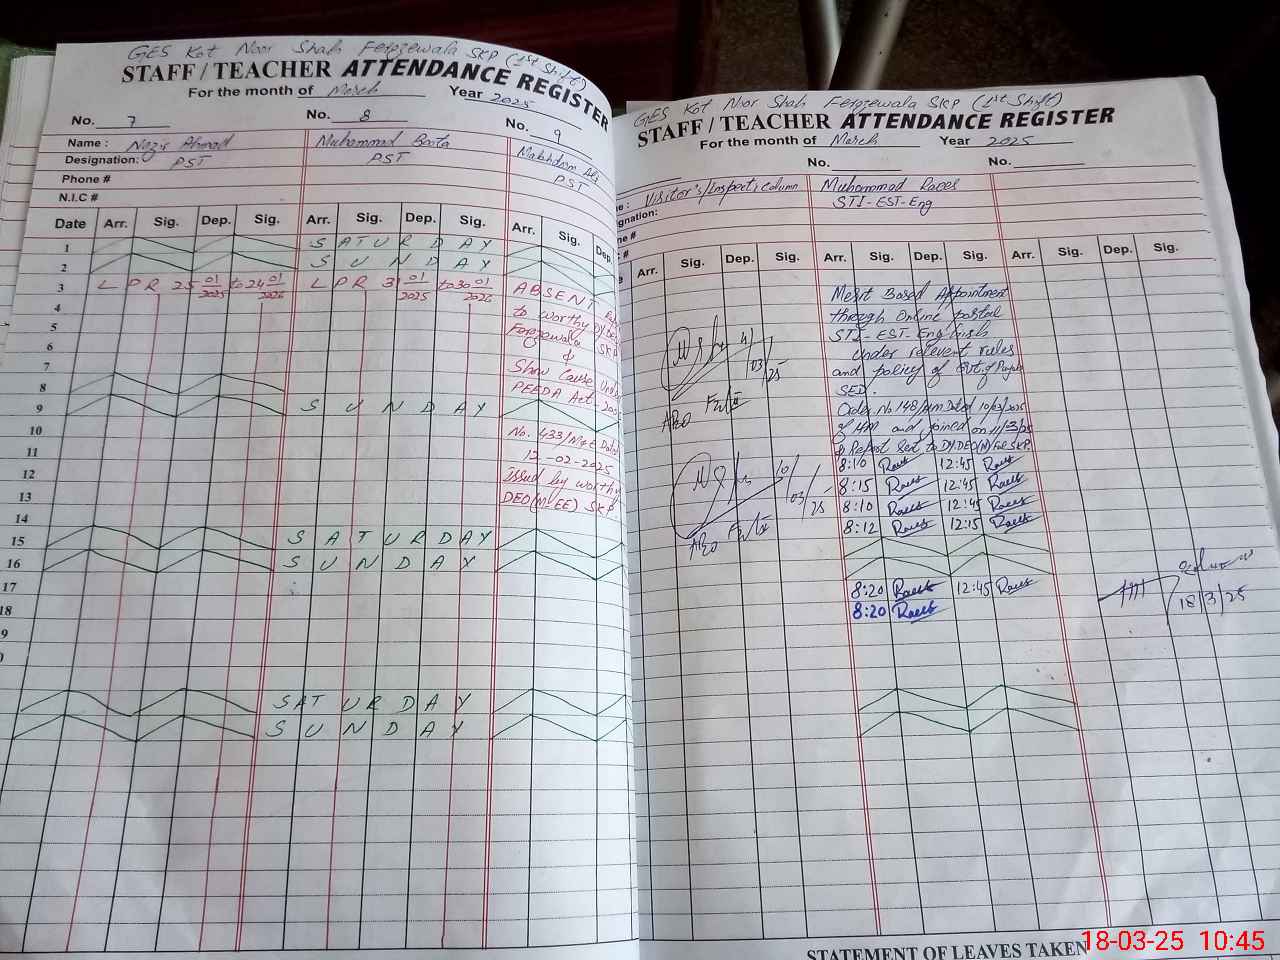 GES Kot Noor Shah Ferozewala SKP (1st Shift)
STAFF / TEACHER ATTENDANCE REGISTER
For the month of March Year 2025
No. 7 No. 8 No. 9
Name : Nazir Ahmad Muhammad Boota Makhdom Ali
Designation: PST PST PST
Phone #
N.I.C #
Date Arr. Sig. Dep. Sig. Arr. Sig. Dep. Sig. Arr. Sig. Dep.
1 SATURDAY
2 SUNDAY
3 LPR 25 01/2025 to 24 01/2026 LPR 31 01/2025 to 30 01/2026 ABSENT
4 to worthy
5 Ferozewala SKP
6 &
7 Show Cause Under
8 PEEDA Act-
9 SUNDAY
10 No. 433/ Dated
11 12-02-2025
12 issued by worthy
13 DEO(M-EE) SKP
14
15 SATURDAY
16 SUNDAY
17
18
9
SATURDAY
SUNDAY
GES Kot Noor Shah Ferozewala SKP (1st Shift)
STAFF / TEACHER ATTENDANCE REGISTER
For the month of March Year 2025
No. No.
e : Visitor's/Inspecti column Muhammad Raees
ignation: STI-EST-Eng
ne #
#
Arr. Sig. Dep. Sig. Arr. Sig. Dep. Sig. Arr. Sig. Dep. Sig.
Merit Based Appointment
through Online portal
STI-EST-English
under relevent rules
and policy of Govt. of Punjab
SED.
Order No 148/HM Dated 10/03/2025
of HM and joined on 11/3/25
& Report sent to DY.DEO(M) SKP.
03/25
AEO
10/03/25
AEO
8:10 Raees 12:45 Raees
8:15 Raees 12:45 Raees
8:10 Raees 12:45 Raees
8:12 Raees 12:15 Raees
8:20 Raees 12:45 Raees
8:20 Raees
18/3/25
STATEMENT OF LEAVES TAKEN
18-03-25 10:45